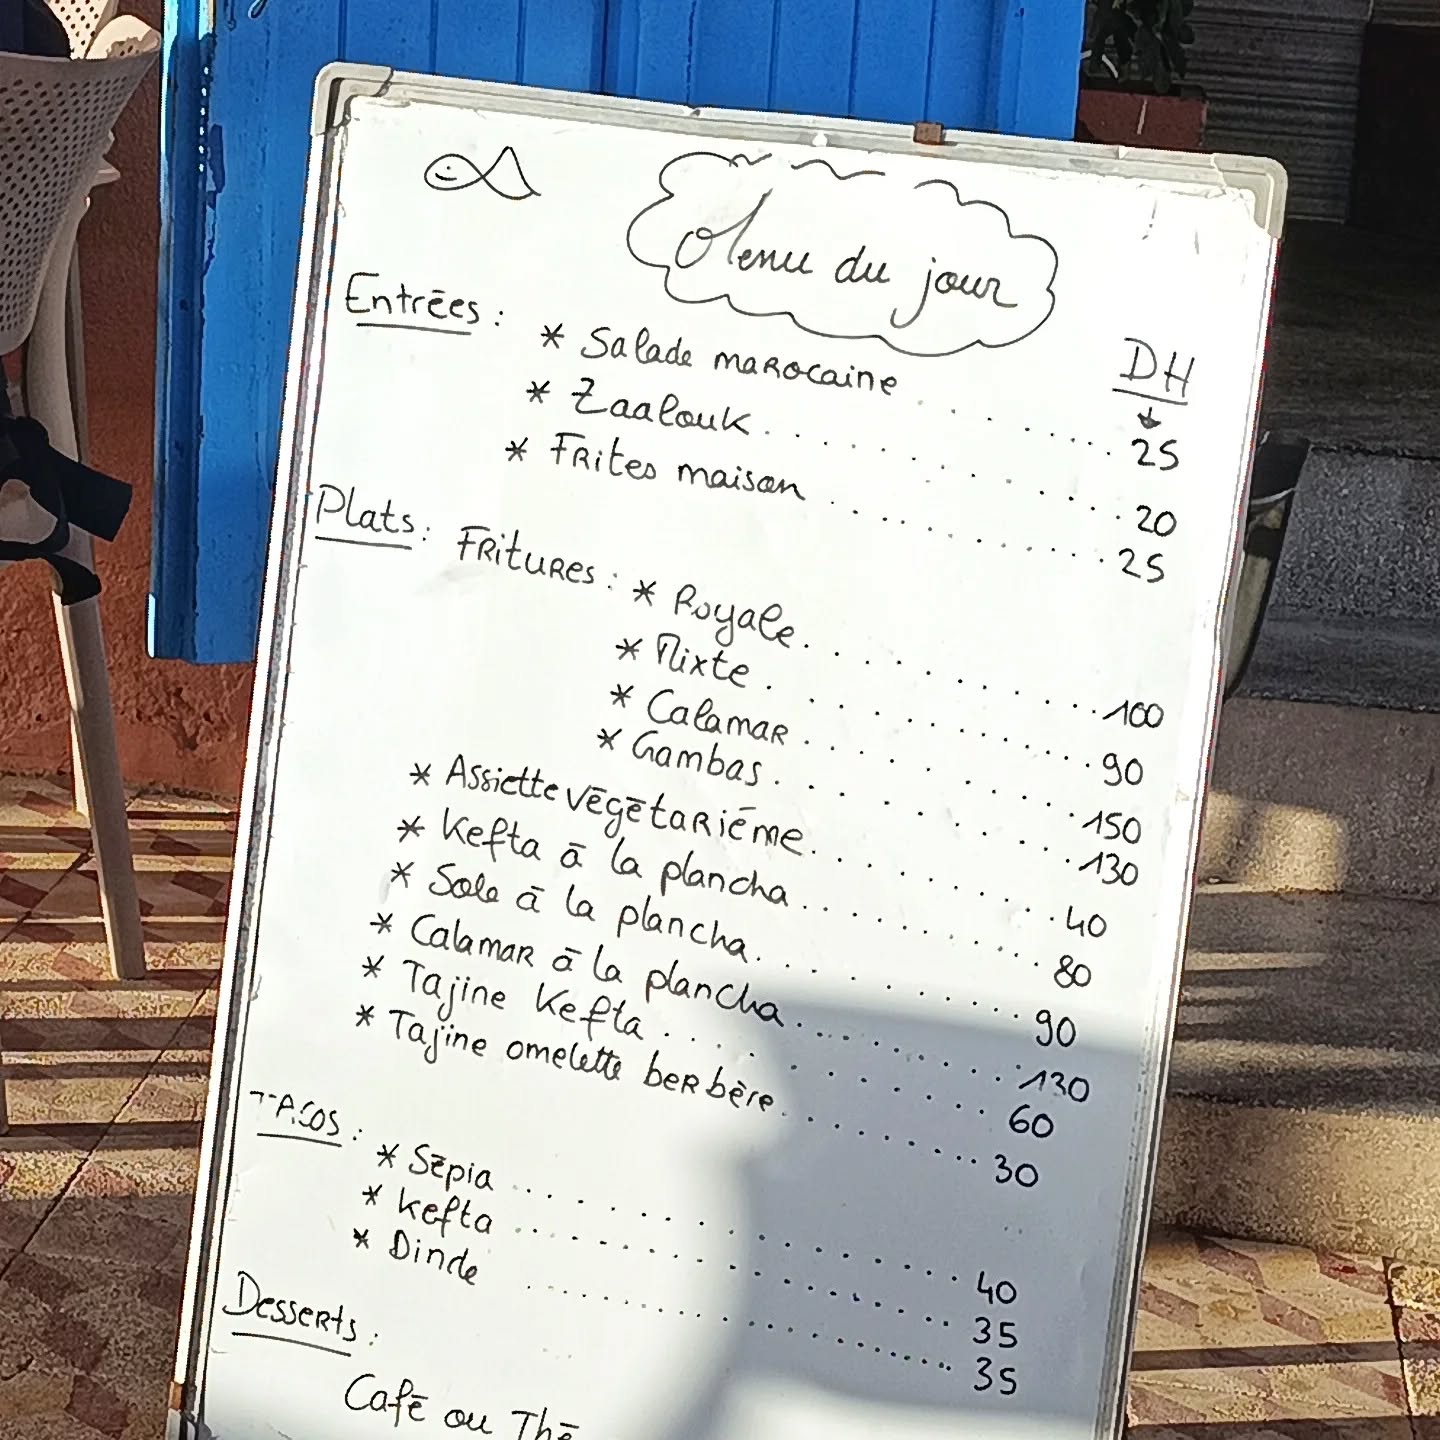 Menu du jour
DH
Entrées : * Salade marocaine . . . . . . . 25
* Zaalouk . . . . . . . . . . . . 20
* Frites maison . . . . . . . . . . 25
Plats : Fritures : * Royale . . . . . . . . . . 100
* Mixte . . . . . . . . . . . 90
* Calamar . . . . . . . . . . 150
* Gambas . . . . . . . . . . 130
* Assiette végétariéme . . . . . . . . . 40
* Kefta à la plancha . . . . . . . . . 80
* Sole à la plancha . . . . . . . . . . 90
* Calamar à la plancha . . . . . . . . . 130
* Tajine Kefta . . . . . . . . . . . 60
* Tajine omelette berbère . . . . . . . . 30
TACOS : * Sépia . . . . . . . . . . . . . 40
* Kefta . . . . . . . . . . . . . 35
* Dinde . . . . . . . . . . . . . 35
Desserts :
Café ou Thé